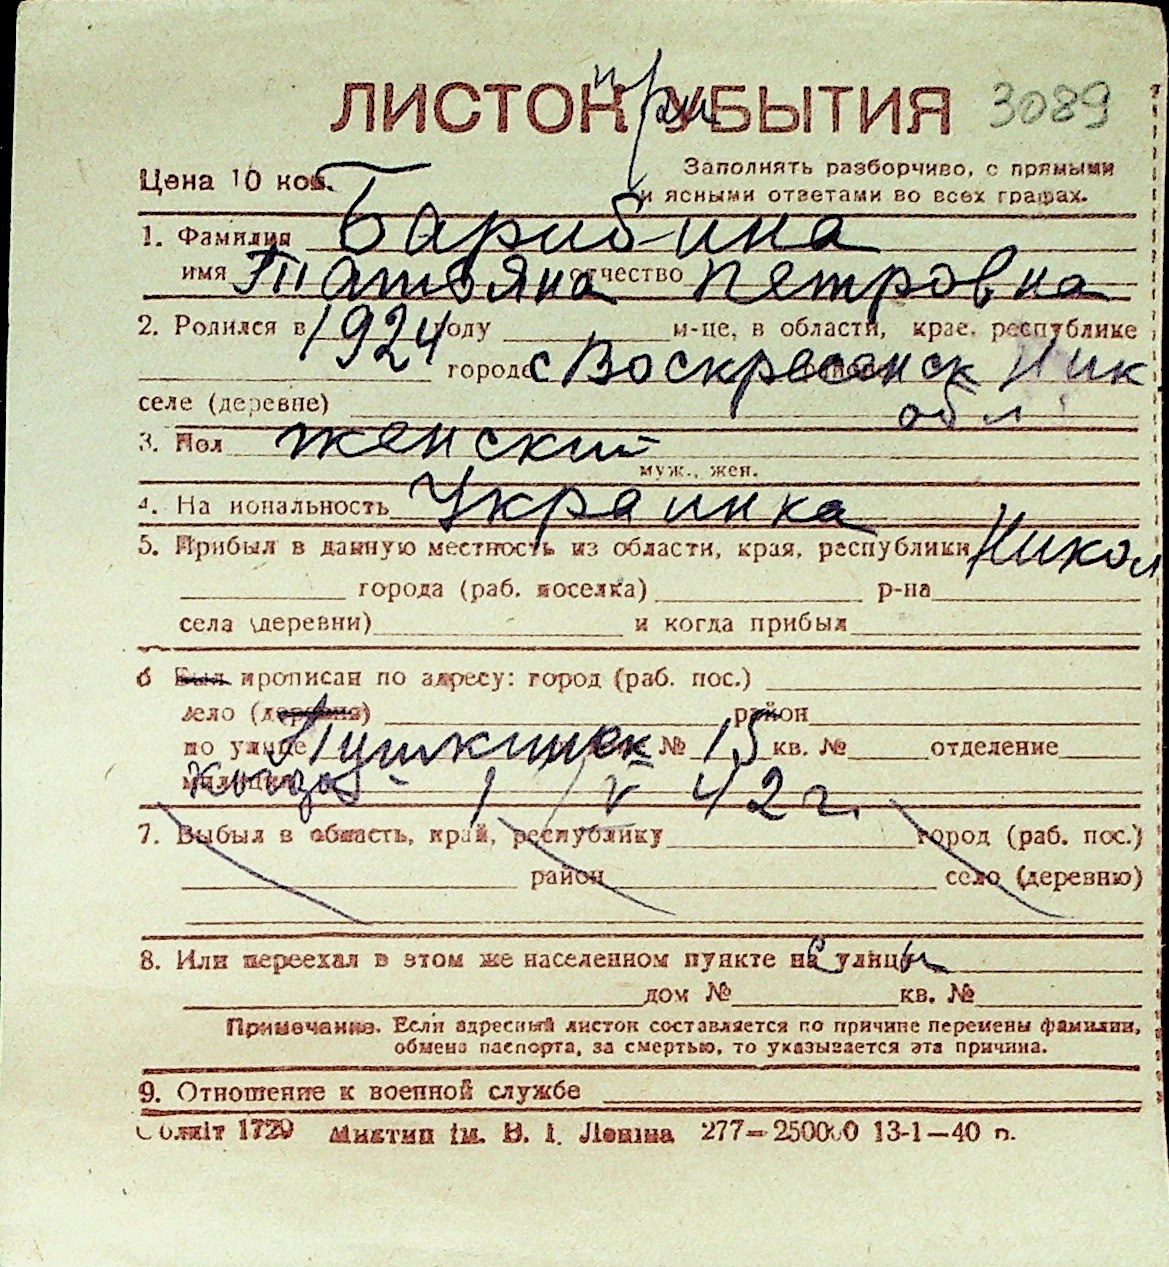 ЛИСТОК при УБЫТИЯ 3089
Цена 10 коп.
Заполнять разборчиво, с прямыми
и ясными ответами во всех графах.
1. Фамилия Барибина
имя Татьяна отчество Петровна
2. Родился в 1924 году м-це, в области, крае, республике
городе с Воскресенск Ник
селе (деревне) обл
3. Пол женский
муж., жен.
4. На иональность Украинка
5. Прибыл в данную местность из области, края, республики Никол
города (раб. поселка) р-на
села (деревни) и когда прибыл
6 Был прописан по адресу: город (раб. пос.)
село (деревня) район
по улице Пушкинск № 15 кв. № отделение
1/V 42 г.
7. Выбыл в область, край, республику город (раб. пос.)
район село (деревню)
8. Или переехал в этом же населенном пункте на улицы
дом № кв. №
Примечание. Если адресный листок составляется по причине перемены фамилии,
обмена паспорта, за смертью, то указывается эта причина.
9. Отношение к военной службе
Облліт 1729 Миктип ім. В. І. Леніна 277—250000 13-1—40 р.